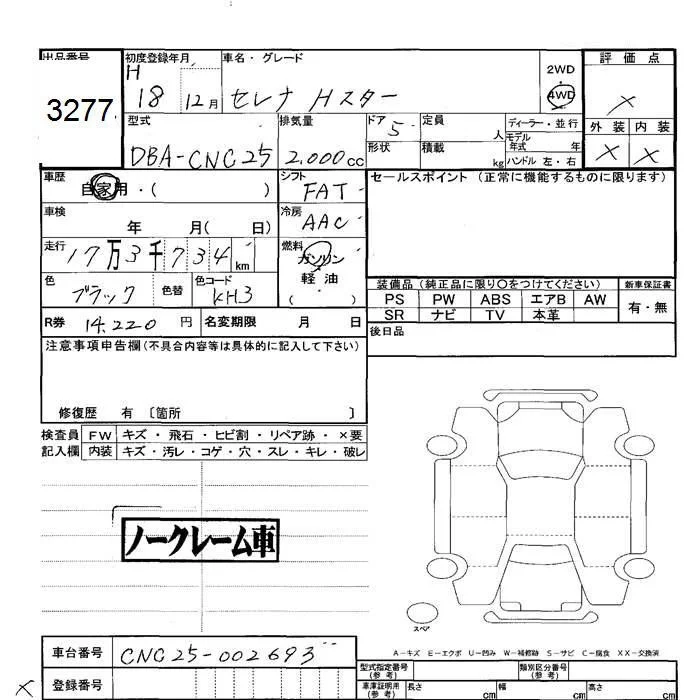 出品番号 初度登録年月 車名・グレード 2WD 評価点
3277 H 18 12月 セレナ Hスター 4WD ×
型式 排気量 ドア 定員 ディーラー・並行 外装 内装
DBA-CNC25 2.000cc 5 人 モデル年式 年 × ×
形状 積載 kg ハンドル 左・右
車歴 自家用・( ) シフト FAT セールスポイント (正常に機能するものに限ります)
車検 年 月( 日) 冷房 AAC
走行 17万3千734km 燃料 ガソリン 軽油 ( )
色 ブラック 色替 色コード KH3
装備品 (純正品に限り○をつけてください) 新車保証書
PS PW ABS エアB AW 有・無
SR ナビ TV 本革
R券 14.220円 名変期限 月 日 後日品
注意事項申告欄 (不具合内容等は具体的に記入して下さい)
修復歴 有 〔箇所 〕
検査員 FW キズ・飛石・ヒビ割・リペア跡・×要
記入欄 内装 キズ・汚レ・コゲ・穴・スレ・キレ・破レ
ノークレーム車
スペア
A-キズ E-エクボ U-凹み W-補修跡 S-サビ C-腐食 XX-交換済
車台番号 CNC25-002693 型式指定番号 (参考) 類別区分番号 (参考)
× 登録番号 車庫証明用 (参考) 長さ cm 幅 cm 高さ cm